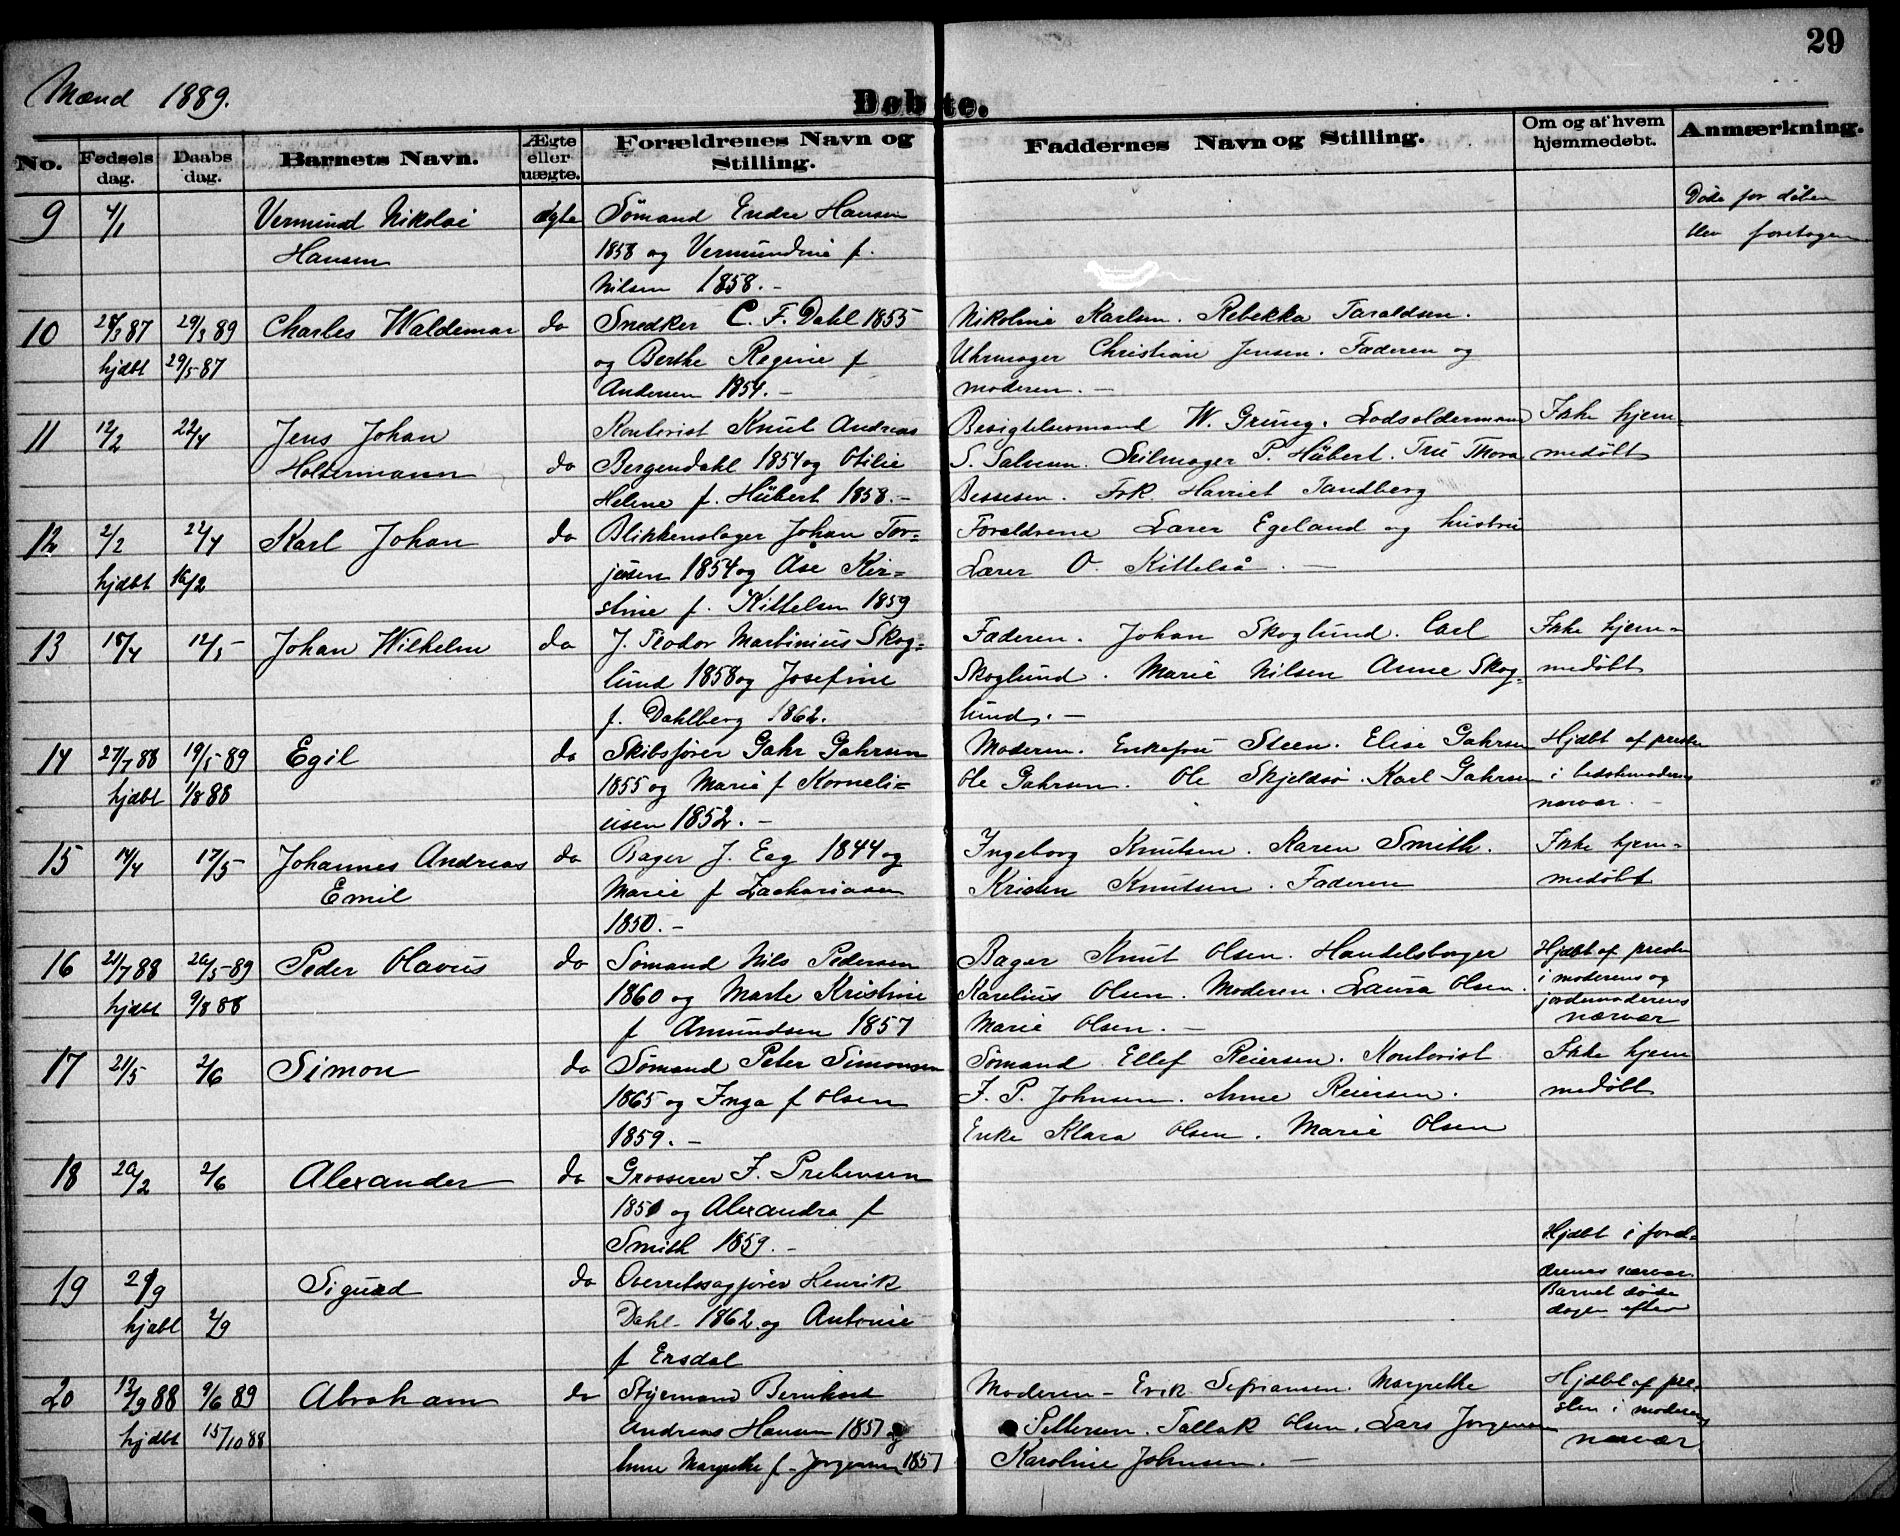 29
Mænd 1889.
Døbte.
No. Fødsels dag. Daabs dag. Barnets Navn. Ægte eller uægte. Forældrenes Navn og Stilling. Faddernes Navn og Stilling. Om og af hvem hjemmedøbt. Anmærkning.
9 4/1 Vermund Nikolai ægte Sømand Endre Hansen Døde før dåben
Hansen 1858 og Vermundine f. blev foretagen
Nilsen 1858. -
10 28/3 87 29/3 89 Charles Waldemar do Snedker C. F. Dahl 1855 Nikoline Karlsen. Rebekka Taraldsen.
hjdbt 29/5 87 og Berthe Regine f Uhrmager Christian Jensen. Faderen og
Andersen 1854. - moderen. -
11 12/2 22/4 Jens Johan Kontorist Knut Andreas Besigtelsesmand W. Grung. Lodsoldermand Ikke hjem-
Holtermann do Bergendahl 1854 og Otilie S. Salvesen. Seilmager P. Hübert. Fru Thora medøbt
Helene f. Hübert 1858. - Bessesen. Frk. Harriet Tandberg
12 2/2 22/4 Karl Johan do Blikkenslager Johan Tor- Forældrene Lærer Egeland og hustru
hjdbt 16/2 jusen 1854 og Åse Kir- Lærer O. Kittelså. -
stine f. Kittelsen 1859
13 15/4 12/5 - Johan Wilhelm do J. Teodor Martinius Skog- Faderen. Johan Skoglund. Carl Ikke hjem-
lund 1858 og Josefine Skoglund. Marie Nilsen Anne Skog- medøbt
f. Dahlberg 1862. lund. -
14 27/7 88 19/5 89 Egil do Skibsfører Gahr Gahrsen Moderen. Enkefru Steen. Elise Gahrsen Hjdbt af presten
hjdbt 1/8 88 1855 og Marie f Korneli- Ole Gahrsen. Ole Skjeldsø. Karl Gahrsen i bedstemoderens
usen 1852. - nærvær. -
15 14/4 17/5 Johannes Andreas do Bager J. Eeg 1844 og Ingeborg Knutsen. Karen Smith. Ikke hjem-
Emil Marie f Zachariasen Kristen Knutsen. Faderen medøbt
1850. -
16 21/7 88 20/5 89 Peder Olavus do Sømand Nils Pedersen Bager Knut Olsen. Handelsborger Hjdbt af presten
hjdbt 9/8 88 1860 og Marte Kristine Karelius Olsen. Moderen. Laura Olsen. i moderens og
f Amundsen 1857 Marie Olsen. - jordemoderens
nærvær
17 21/5 2/6 Simon do Sømand Peter Simonsen Sømand Ellef Reiersen. Kontorist Ikke hjem
1865 og Inga f Olsen J. P. Johnsen. Anne Reiersen. medøbt
1859. - Enke Klara Olsen. Marie Olsen
18 20/2 2/6 Alexander do Grosserer F. Prebensen
1850 og Alexandra f
Smith 1859. - Hjdbt i foræl-
19 2/9 Sigurd do Overretssagfører Henrik drenes nærvær.
Barnet døde
hjdbt 2/9 Dahl 1862 og Antonie dagen efter
f Ersdal
20 12/9 88 9/6 89 Abraham do Styrmand Bernhard Moderen - Erik Sefriansen. Margrethe Hjdbt af pre-
hjdbt 15/10 88 Andreas Hansen 1857 og Pettersen. Tallak Olsen. Lars Jørgensen sten i moderens
Anne Margrethe f. Jørgensen 1857 Karoline Johnsen. - nærvær